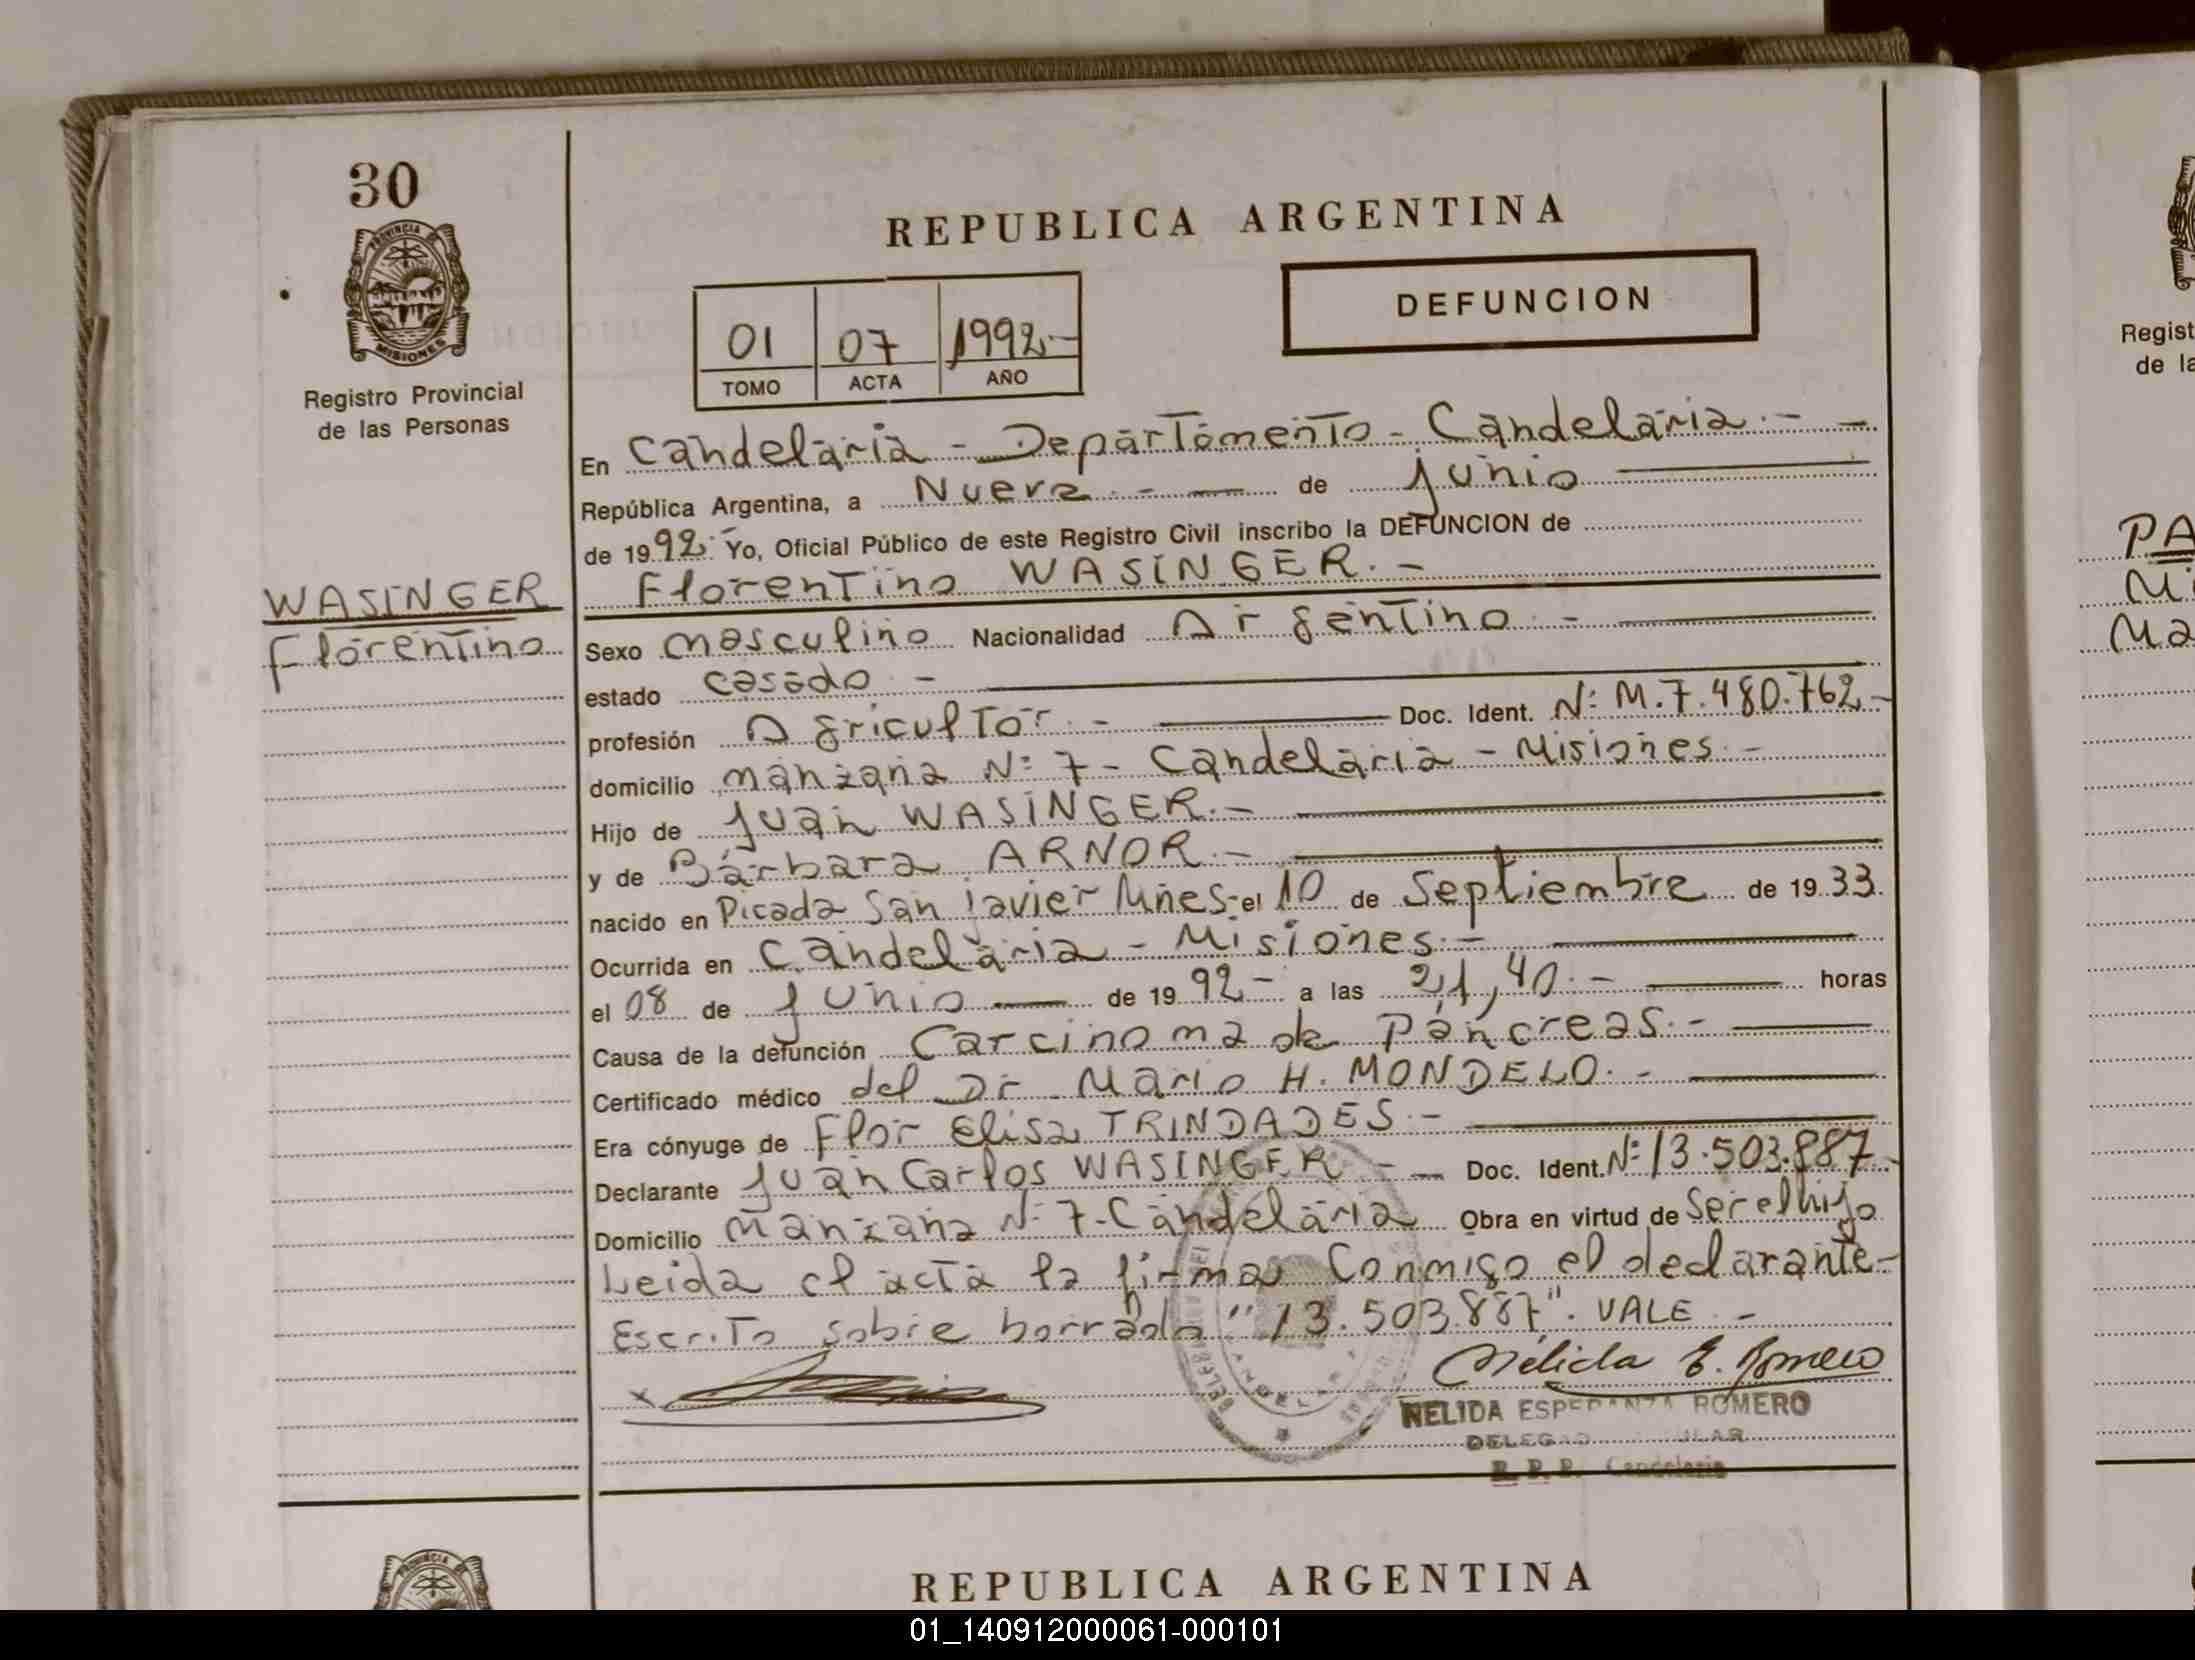 30
PROVINCIA DE
MISIONES
Registro Provincial
de las Personas
WASINGER
Florentino
REPUBLICA ARGENTINA
DEFUNCION
01 07 1992.-
TOMO ACTA AÑO
En Candelaria - Departamento - Candelaria.- -
República Argentina, a Nueve.- - de junio
de 1992.- Yo, Oficial Público de este Registro Civil inscribo la DEFUNCION de
Florentino WASINGER.-
Sexo masculino Nacionalidad Argentino.-
estado casado.-
profesión Agricultor.- Doc. Ident. Nº M.7.480.762.-
domicilio manzana Nº 7 - Candelaria - Misiones.-
Hijo de Juan WASINGER.-
y de Bárbara ARNOR.-
nacido en Picada San Javier Mnes.- el 10 de Septiembre de 1933.
Ocurrida en Candelaria - Misiones.-
el 08 de junio de 1992.- a las 21,40.- horas
Causa de la defunción Carcinoma de Páncreas.-
Certificado médico del Dr. Mario H. MONDELO.-
Era cónyuge de Flor Elisa TRINDADES.-
Declarante Juan Carlos WASINGER - - Doc. Ident. Nº 13.503.887.-
Domicilio Manzana Nº 7-Candelaria Obra en virtud de Ser el hijo
Leida el acta la firma Conmigo el declarante.-
Escrito sobre borrado "13.503.887". VALE.-
x
Nélida E. Romero
NELIDA ESPERANZA ROMERO
DELEGADO TITULAR
R. P. P. Candelaria
Regist
de la
PA
Mi
Ma
REPUBLICA ARGENTINA
01_140912000061-000101